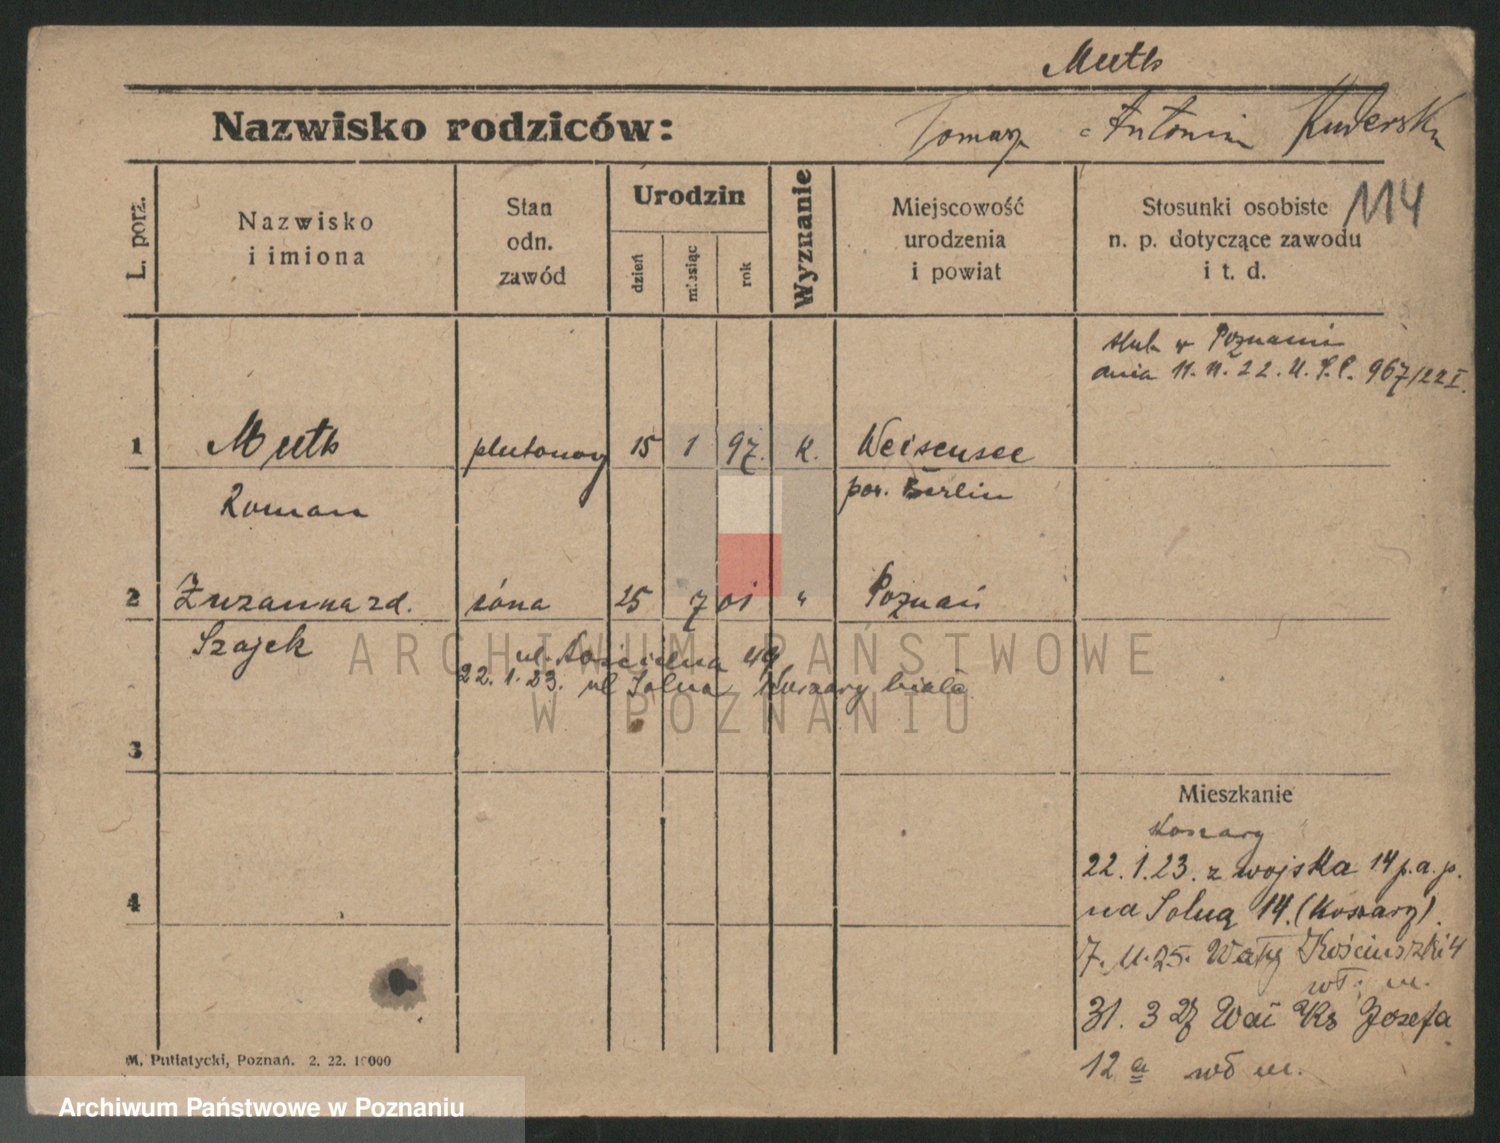 Muth
Nazwisko rodziców: Tomasz Antonina Kuderska
L. porz.
Nazwisko
i imiona
Stan
odn.
zawód
Urodzin
dzień
miesiąc
rok
Wyznanie
Miejscowość
urodzenia
i powiat
Stosunki osobiste
n. p. dotyczące zawodu
i t. d.
114
ślub w Poznaniu
dnia 11. 11. 22. U. S. P. 967/22 I.
1 Muth plutonowy 15 1 97. k. Weisensee
Roman pow. Berlin
2 Zuzanna zd. żona 25 7 01 " Poznań
Szajek
ul. Kościelna 49
22. 1. 23. ul Solna Koszary białe
3
Mieszkanie
Koszary
22. 1. 23. z wojska 14 p. a. p.
na Solną 14. (Koszary).
4
7. 11. 25. Wały Kościuszki 4
wł. m.
31. 3 27 Wał Ks Józefa
12 a wł m.
M. Putiatycki, Poznań. 2. 22. 10000
ARCHIWUM PAŃSTWOWE
W POZNANIU
Archiwum Państwowe w Poznaniu